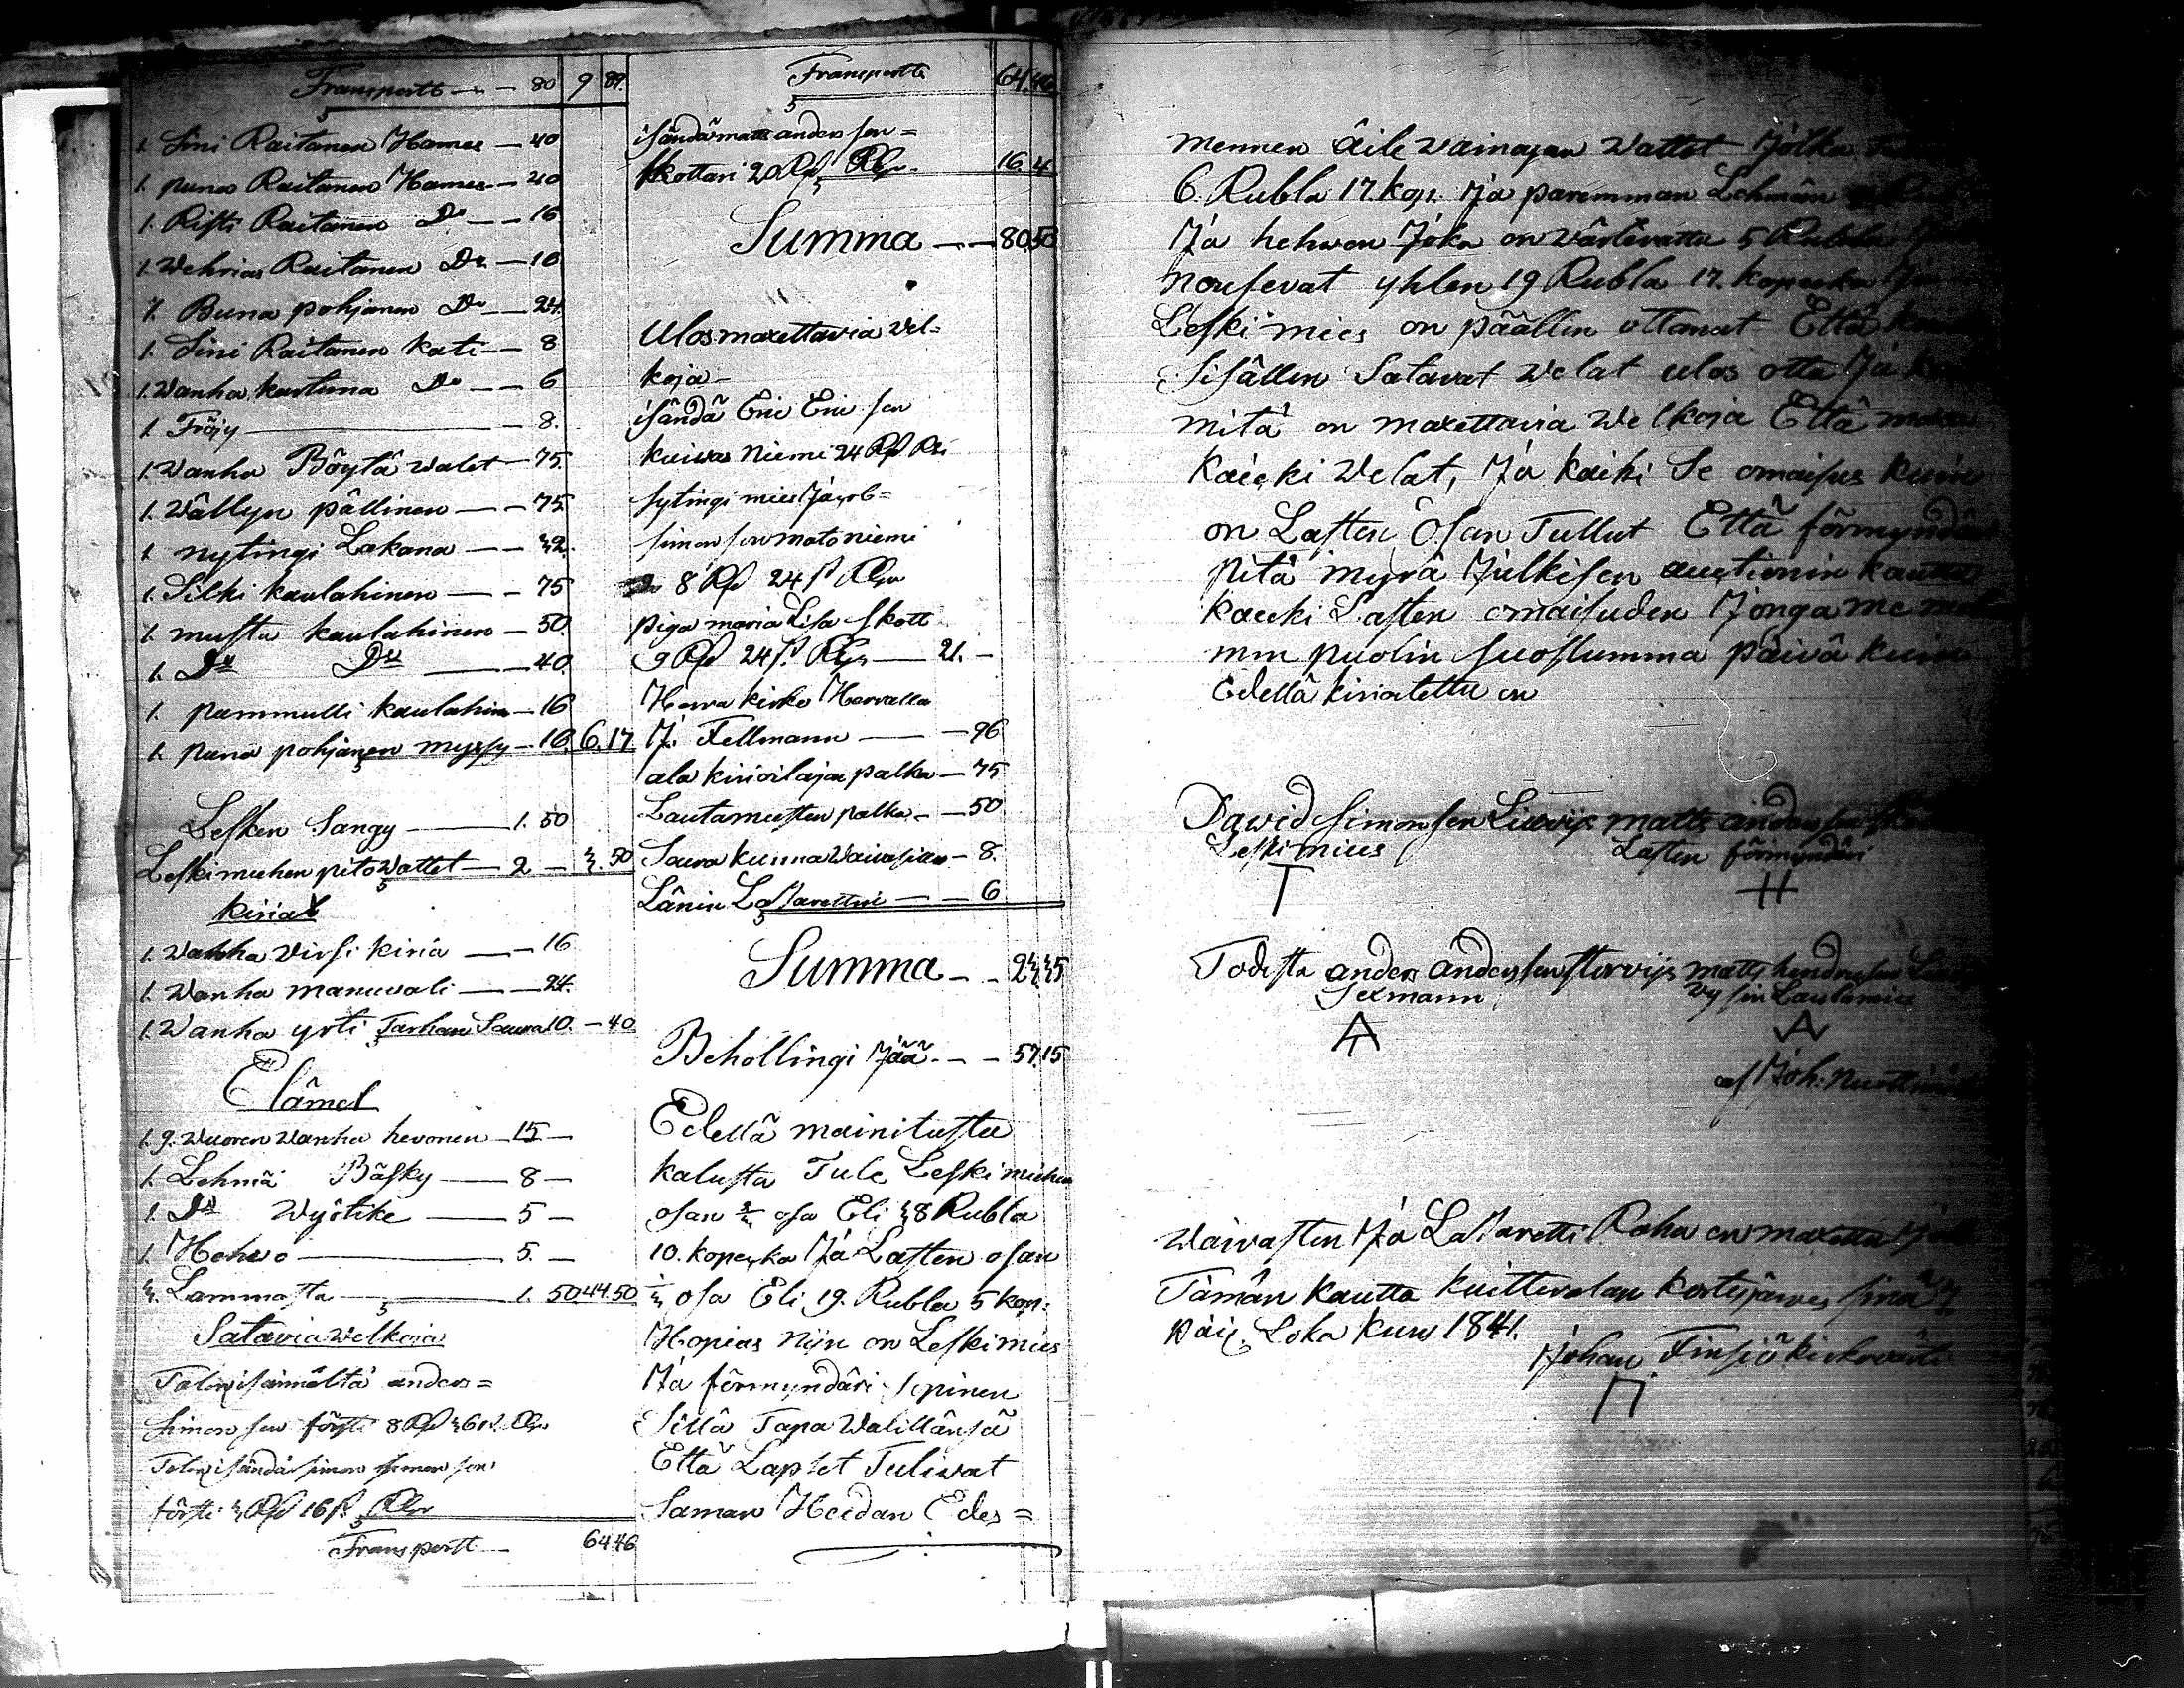 Transportt — — 80 9 89.
1. Sini Raitanen Hames — 40
1. puna Raitanen Hames — 40
1. Risti Raitanen Do — — 16
1. Wehrias Raitanen Do — 10
1. Buna pohjanen Do — 24.
1. Sini Raitanen kati — — 8
1. Wanha kartuna Do — — 6
1. Tröijy — 8.
1. Wanha Böytä walet — 75.
1. Wällyn pällinen — — 75.
1. nytingi Lakana — — 32.
1. Silki kaulahinen — — 75
1. musta kaulahinen — 50.
1. Do Do — 40.
1. pummulli kaulahin — 16
1. puna pohjanen myssy — 16. 6. 17
Lesken Sangy — 1. 50
Leskimiehen pitowattet — 2 — 3. 50
kiriat
1. Wanha Virsi kiria — — 16
1. Wanha manuvali — — 24.
1. Wanha yrti Tarhan Saura 10. — 40
Elämet
1. 9. Wuoren Wanha hevonen — 15 —
1. Lehmä Bäsky — 8 —
1. Do Wyötike — 5 —
1. Hehwo — 5. —
3. Lammasta — 1. 50 44. 50
Satavia welkoia
Talon isännältä anders =
Simon sen försti 8 Rf 36 s. Rgs
Talon isändä simon simon sen
törsti 3 Rf 16 s. Rgs
Transportt — 64 46
Transportt 64. 46.
isändä matts anders sen =
skottari 20 Rf Rgs. 16. 4
Summa — — 80. 50
Ulosmaxettavia Vel =
koja —
isändä Eric Eric sen
kuivas Niemi 24 Rf Rs
sytingi mies Jacob =
simon sen mato niemi
8 Rf 24 s Rgs
piga maria Lisa skott
9 Rf 24 s. Rgs — 21. —
Herra kirko Herralla
J. Fellmann — — 96
ala kirioitajan palka — 75
Lautamiesten palka — — 50
Saura kunna Waivasian — 8.
Länin Lasarettin — — 6
Summa — — 23 35
Behollingi Jää — — 57. 15
Edellä mainitusta
kalusta Tule Leskimiehen
osan 2/3 osa Eli 38 Rubla
10. kopecka Ja Lasten osan
1/3 osa Eli 19. Rubla 5 kop:
Hopias Nijn on Leskimies
Ja förmyndäri sopinen
Sillä Tapa Walillänsä
Että Lapset Tuliwat
Saman Heidan Edes =
mennen äile wainajan Wattet Jotka
6. Rubla 17. kop. Ja paremman Lehmän
Ja hehwon Joka on Wärderattu 5 Rubla
Nousevat yhten 19 Rubla 17. kopecka
Leski mies on päällin ottanut Että
Sisällen Satavat Welat ulos otta Ja
mitä on maxettavia Welkoja Että
Kaicki Welat, Ja kaiki Se omaisus kuin
on Lasten Osan Tullut Että förmyndä
pitä myyä Julkisen auctionin kautta
kaicki Lasten omaisuden Jonga me
mm puolin suostumma päivä kuin
Edellä kirioitettu on
Dawid Simon sen matts anders sen
Leski mies Lasten förmyndäri
Todista anders anders sen matts hendric sen
Sexmann, Lautamies
af Joh:
Waivasten Ja Lasaretti Raha on maxettu
Tämän kautta kuitteratan sinä
päiv. Loka kuus 1841.
Johan